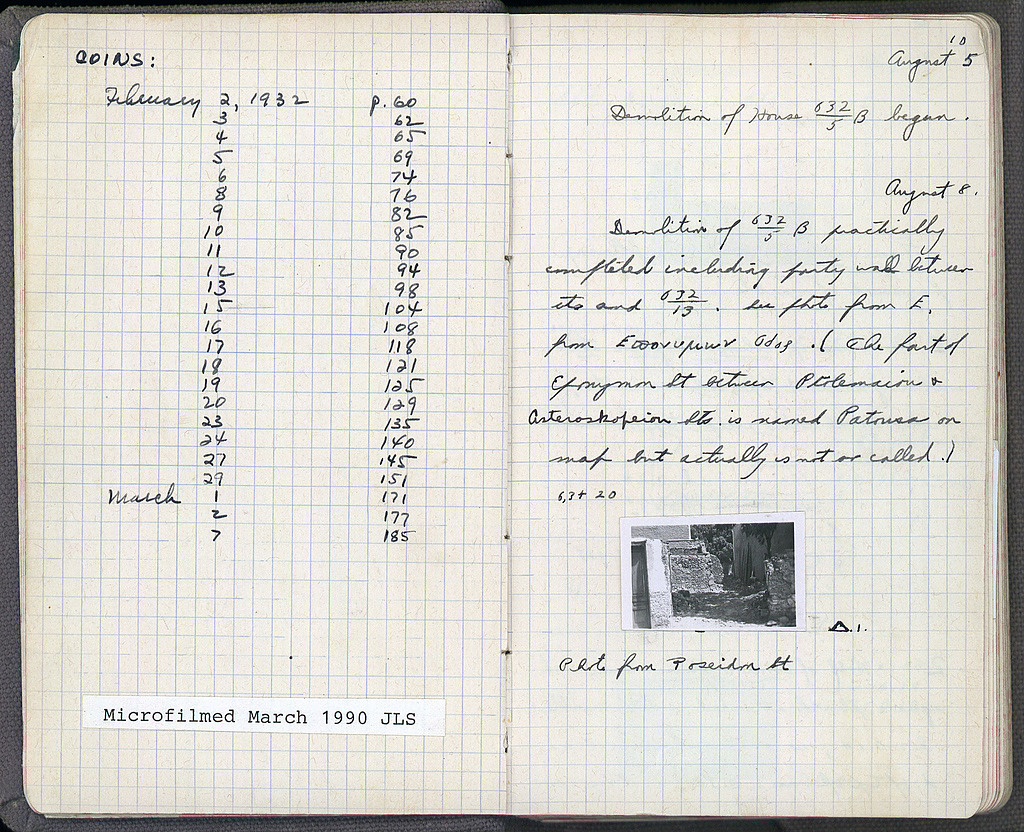 COINS:
February 2, 1932 p. 60
3 62
4 65
5 69
6 74
8 76
9 82
10 85
11 90
12 94
13 98
15 104
16 108
17 118
18 121
19 125
20 129
23 135
24 140
27 145
29 151
March 1 171
2 177
7 185
Microfilmed March 1990 JLS
10
August 5
Demolition of House 632/5 B begun.
August 8.
Demolition of 632/5 B practically
completed including party wall between
its and 632/13. See photo from E.
from Επονυμων οδος. (The part of
Eponymon St between Ptolemaion &
Asteroskopeion Sts. is named Patousa on
map but actually is not so called.)
6,3+ 20
Δ.1.
Photo from Poseidon St